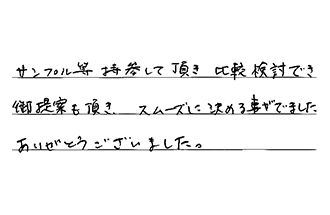 サンプル等持参して頂き比較検討でき
御提案も頂き、スムーズに決める事がでました
ありがとうございました。